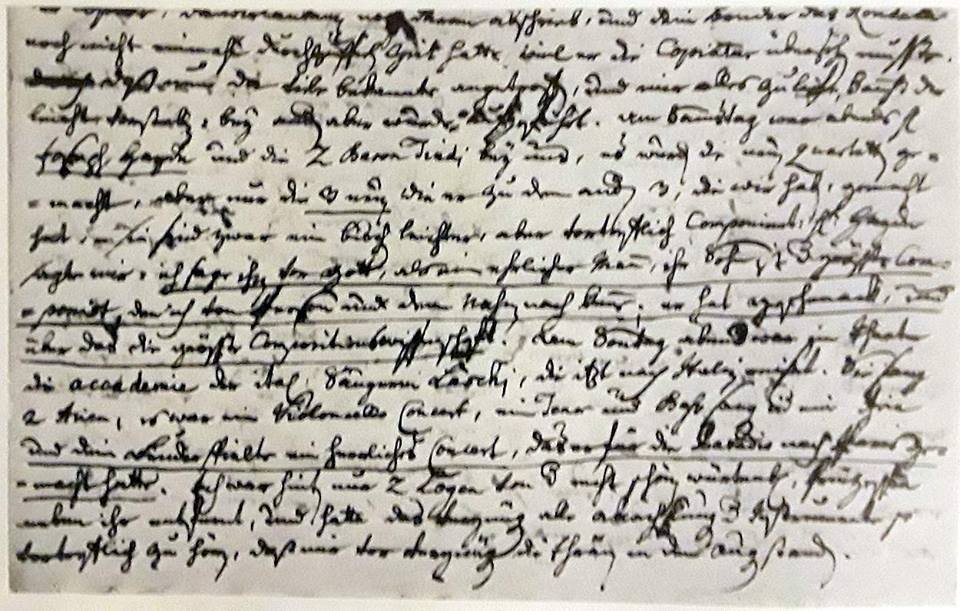 noch daran abschrieb, und dein Bruder das Rondeau
noch nicht einmahl durchzuspielen Zeit hatte, weil er die Copiatur übersehen musste.
daß nun da viele bekannte angetroffen, und mir alles zulief, kannst du
leicht vorstellen: bey andern aber wurde ich aufgeführt. am Samstag war abends H:
Joseph Haydn und die 2 Baron Tindi bey uns, es wurden die neuen quartetten ge=
=macht, aber nur die 3 neuen die er zu den andern 3, die wir haben, gemacht
hat, sie sind zwar ein bischen leichter, aber vortrefflich Componiert. H: Haydn
sagte mir: ich sage ihnen vor Gott, als ein ehrlicher Mann, ihr Sohn ist der größte Com=
=ponist, den ich von Person und dem Nahmen nach kenne; er hat geschmack, und
über das die größte Compositionswissenschaft. am Sontag abend war im theater
die accademie der ital: Sängerin Laschi, die itzt nach Italien reiset. Sie sang
2 Arien, es war ein Violoncello Concert, ein Tenor und Bass sang ieder eine Aria
und dein Bruder spielte ein herrliches Concert, das er für die Paradis nach Paris ge=
=macht hatte. Ich war hinten nur 2 Logen von der recht schönen würtemb: Prinzessin
neben ihr entfernt, und hatte das vergnügen alle abwechslung der Instrumente so
vortrefflich zu hören, daß mir vor vergnügen die thränen in den augen standen.